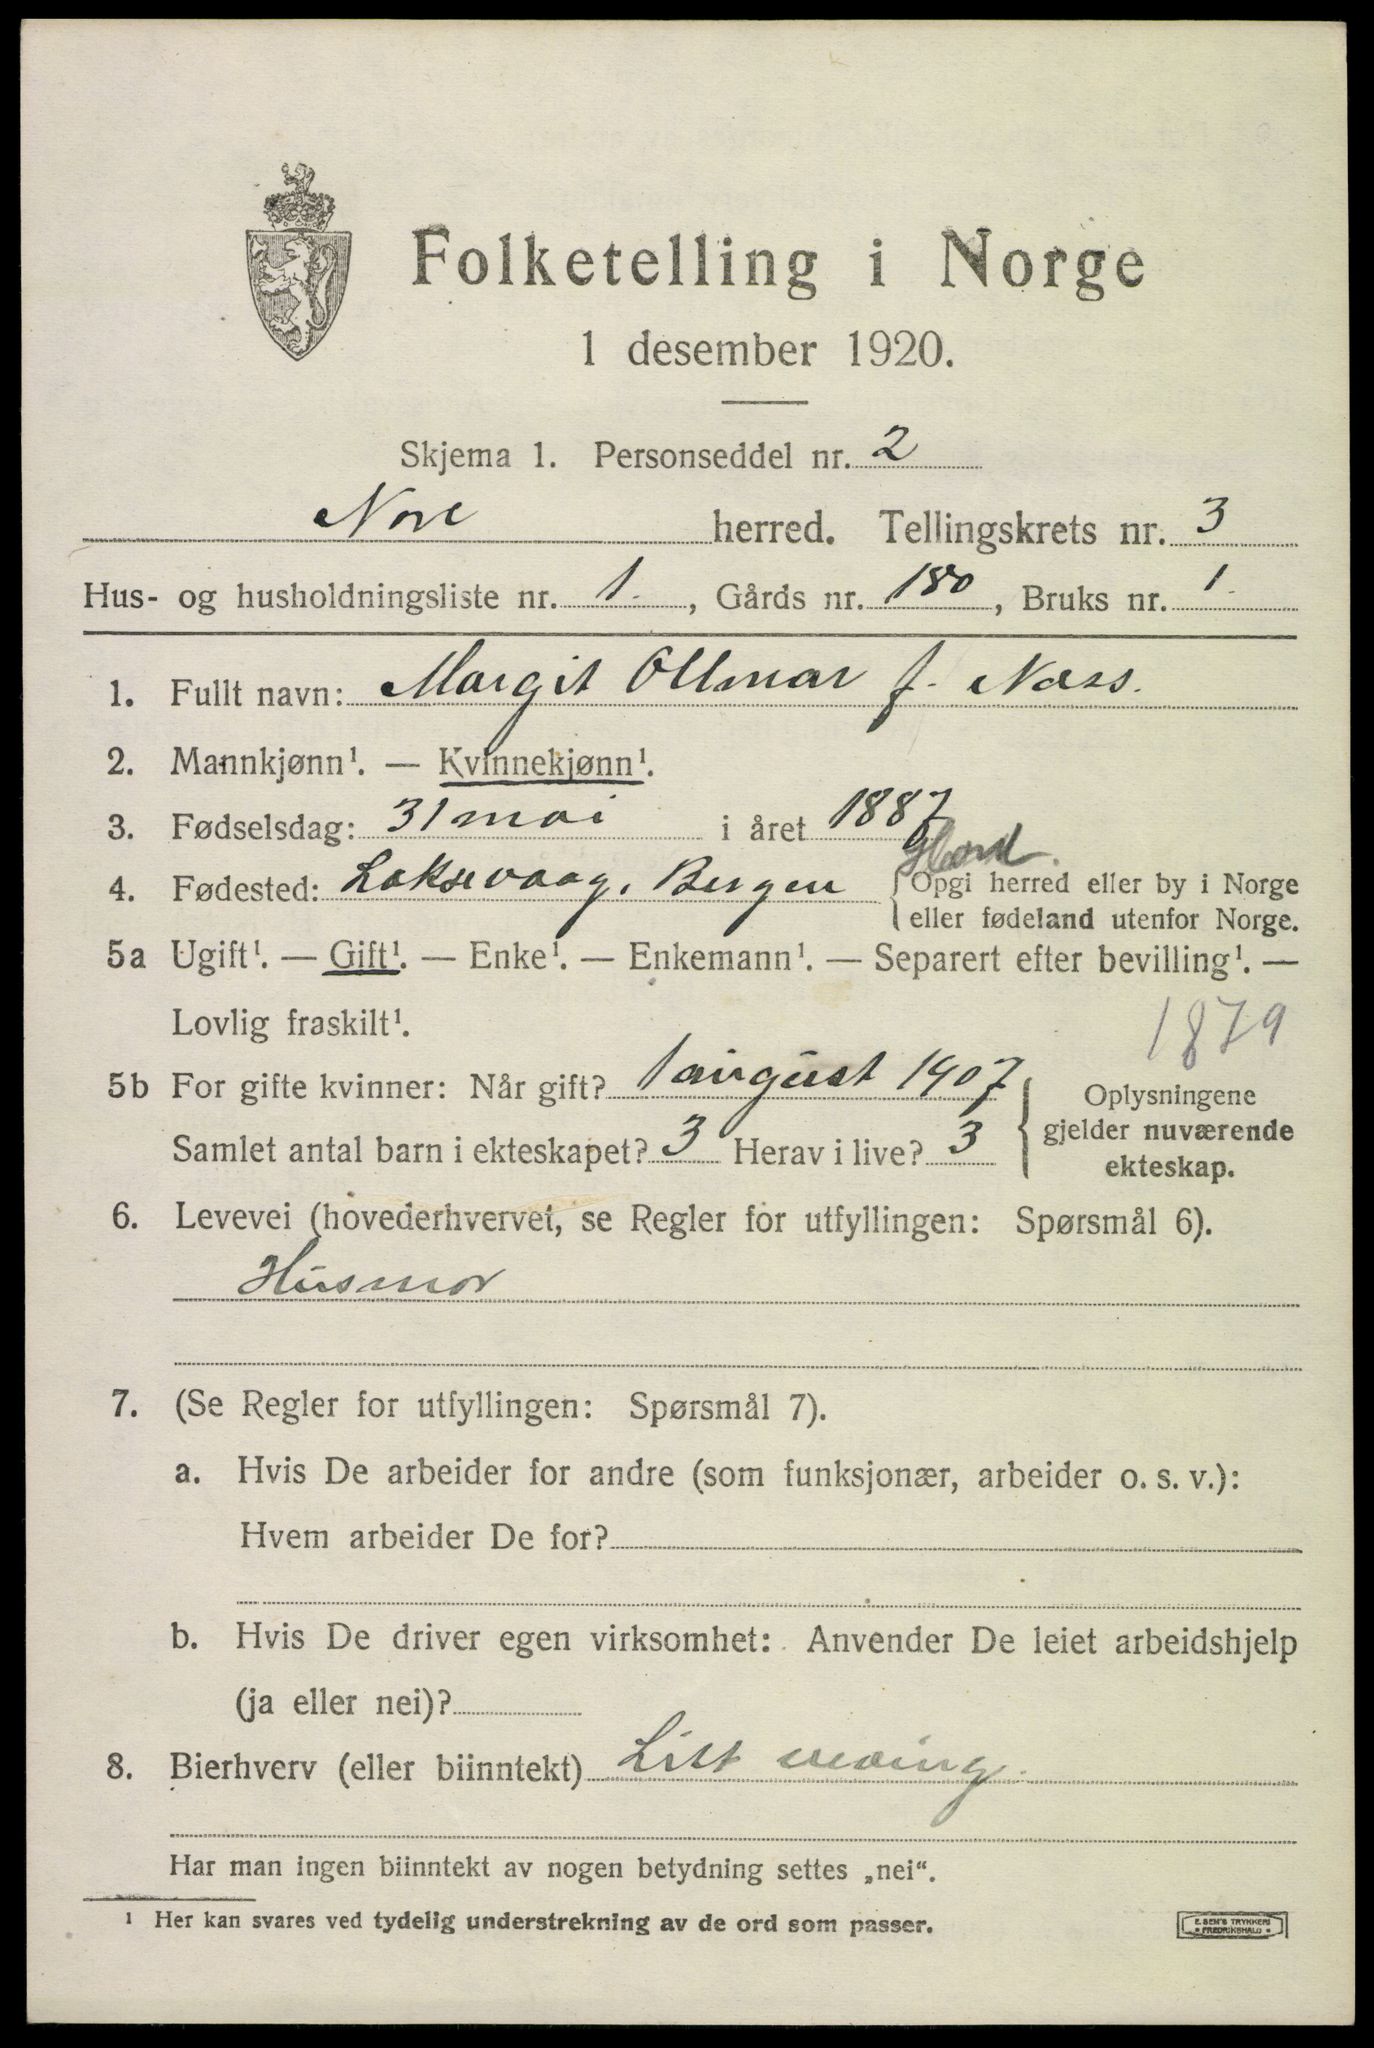 Folketelling i Norge
1 desember 1920.
Skjema 1. Personseddel nr. 2
Nore herred. Tellingskrets nr. 3
Hus- og husholdningsliste nr. 1. , Gårds nr. 180 , Bruks nr. 1.
1. Fullt navn: Margit Ollmar f. Næss.
2. Mannkjønn¹. — Kvinnekjønn¹.
3. Fødselsdag: 31 mai i året 1887
Hord.
4. Fødested: Laksevaag, Bergen { Opgi herred eller by i Norge
eller fødeland utenfor Norge.
5a Ugift¹. — Gift¹. — Enke¹. — Enkemann¹. — Separert efter bevilling¹. —
Lovlig fraskilt¹.
1879
5b For gifte kvinner: Når gift? 1 august 1907 { Oplysningene
gjelder nuværende
Samlet antal barn i ekteskapet? 3 Herav i live? 3
ekteskap.
6. Levevei (hovederhvervet, se Regler for utfyllingen: Spørsmål 6).
Husmor
7. (Se Regler for utfyllingen: Spørsmål 7).
a. Hvis De arbeider for andre (som funksjonær, arbeider o. s. v.):
Hvem arbeider De for?
b. Hvis De driver egen virksomhet: Anvender De leiet arbeidshjelp
(ja eller nei)?
8. Bierhverv (eller biinntekt) Litt veving.
Har man ingen biinntekt av nogen betydning settes „nei“.
¹ Her kan svares ved tydelig understrekning av de ord som passer.
E. SEM'S TRYKKERI
FREDRIKSHALD